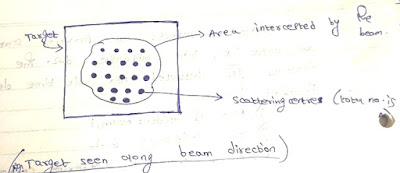 Target
Area intercepted by the
beam.
scattering centres (total no. is
Target seen along beam direction)